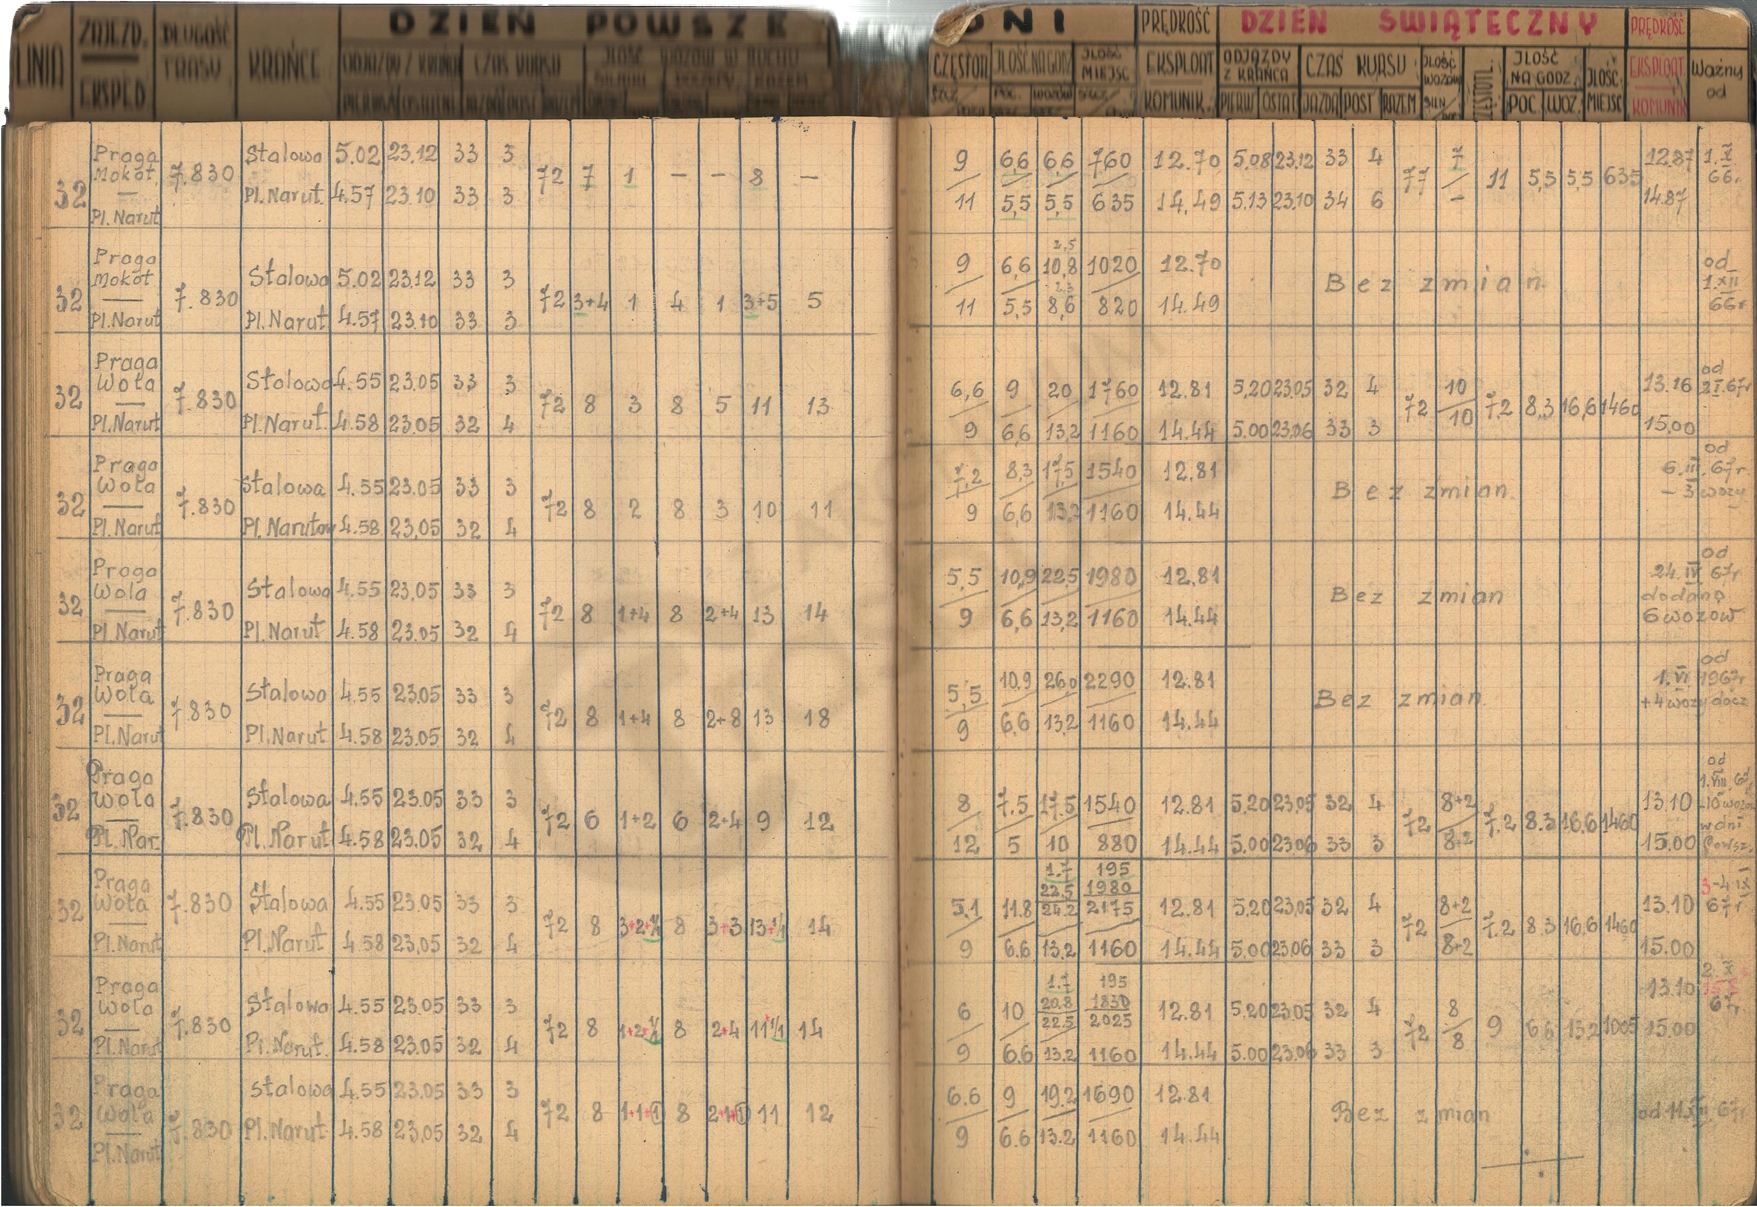 DZIEŃ POWSZE
DNI
DZIEŃ ŚWIĄTECZNY
LINIA ZAJEZD. EKSPED DŁUGOŚĆ TRASY KRAŃCE
PRĘDKOŚĆ EKSPLOAT KOMUNIK.
ODJAZDY Z KRAŃCA PIERW OSTAT CZAS KURSU JAZDA POST RAZEM
JLOŚĆ NA GODZ. POC. WOZ. JLOŚĆ MIEJSC
PRĘDKOŚĆ EKSPLOAT KOMUNIK
Ważny od
Praga Stalowa 5.02 23.12 33 3 9 6,6 6,6 760 12.70 5.08 23.12 33 4 7 12.87 1.X
32 Mokot. 7.830 72 7 1 – – 8 – 77 11 5,5 5,5 635 66r
Pl. Narut Pl. Narut 4.57 23.10 33 3 11 5,5 5,5 635 14,49 5.13 23.10 34 6 – 14.87
Praga Stalowa 5.02 23.12 33 3 9 6,6 10,8 1020 12.70 od
32 Mokot 7.830 72 3+4 1 4 1 3+5 5 Bez zmian 1.XII
Pl. Narut Pl. Narut 4.57 23.10 33 3 11 5,5 8,6 820 14.49 66r
Praga Stalowa 4.55 23.05 33 3 6,6 9 20 1760 12.81 5,20 23.05 32 4 10 13.16 od
32 Wola 7.830 72 8 3 8 5 11 13 72 7.2 8,3 16,6 1460 2I.67r
Pl. Narut Pl. Narut. 4.58 23.05 32 4 9 6,6 13,2 1160 14.44 5.00 23.06 33 3 10 15,00
Praga Stalowa 4.55 23.05 33 3 7,2 8,3 17,5 1540 12.81 od
32 Wola 7.830 72 8 2 8 3 10 11 Bez zmian. 6.III.67r
Pl. Narut Pl. Narutow 4.58 23,05 32 4 9 6,6 13,2 1160 14.44 – 3 wozy
Praga Stalowa 4.55 23,05 33 3 5,5 10,9 22,5 1980 12.81 od
32 Wola 7.830 72 8 1+4 8 2+4 13 14 Bez zmian 24.IV 67r
Pl. Narut Pl. Narut 4.58 23.05 32 4 9 6,6 13,2 1160 14.44 dodano 6 wozów
Praga Stalowa 4.55 23.05 33 3 5,5 10.9 26.0 2290 12.81 od
32 Wola 7.830 72 8 1+4 8 2+8 13 18 Bez zmian 1.VI 1967r
Pl. Narut Pl. Narut 4.58 23.05 32 4 9 6,6 13,2 1160 14.44 +4 wozy docz
Praga Stalowa 4.55 23.05 33 3 8 7.5 17.5 1540 12.81 5,20 23,05 32 4 8+2 13.10 od
32 Wola 7.830 72 6 1+2 6 2+4 9 12 72 7.2 8.3 16,6 1460 1.VII 67
Pl. Nar. Pl. Narut 4.58 23.05 32 4 12 5 10 880 14.44 5.00 23.06 33 3 8+2 15.00 w dni Powsz.
1.7 195
22.5 1980
Praga Stalowa 4.55 23.05 33 3 5.1 11.8 24.2 2175 12.81 5,20 23.05 32 4 8+2 13.10 3-4 IX
32 Wola 7.830 72 8 8 3+3 14 72 7.2 8.3 16,6 1460 67r
Pl. Narut Pl. Narut 4.58 23,05 32 4 9 6.6 13.2 1160 14.44 5.00 23.06 33 3 8+2 15.00
1.7 195
20,8 1830
Praga Stalowa 4.55 23.05 33 3 6 10 22.5 2025 12.81 5.20 23.05 32 4 8 13.10 2.X
32 Wola 7.830 72 8 8 2+4 14 72 9 6.6 13.2 1005 67r
Pl. Narut Pl. Narut. 4.58 23.05 32 4 9 6.6 13.2 1160 14.44 5.00 23.06 33 3 8 15.00
Praga Stalowa 4.55 23.05 33 3 6.6 9 19.2 1690 12.81
32 Wola 7.830 72 8 1+1+1 8 2+1+1 11 12 Bez zmian od 11.XII 67r
Pl. Narut Pl. Narut 4.58 23,05 32 4 9 6.6 13.2 1160 14.44